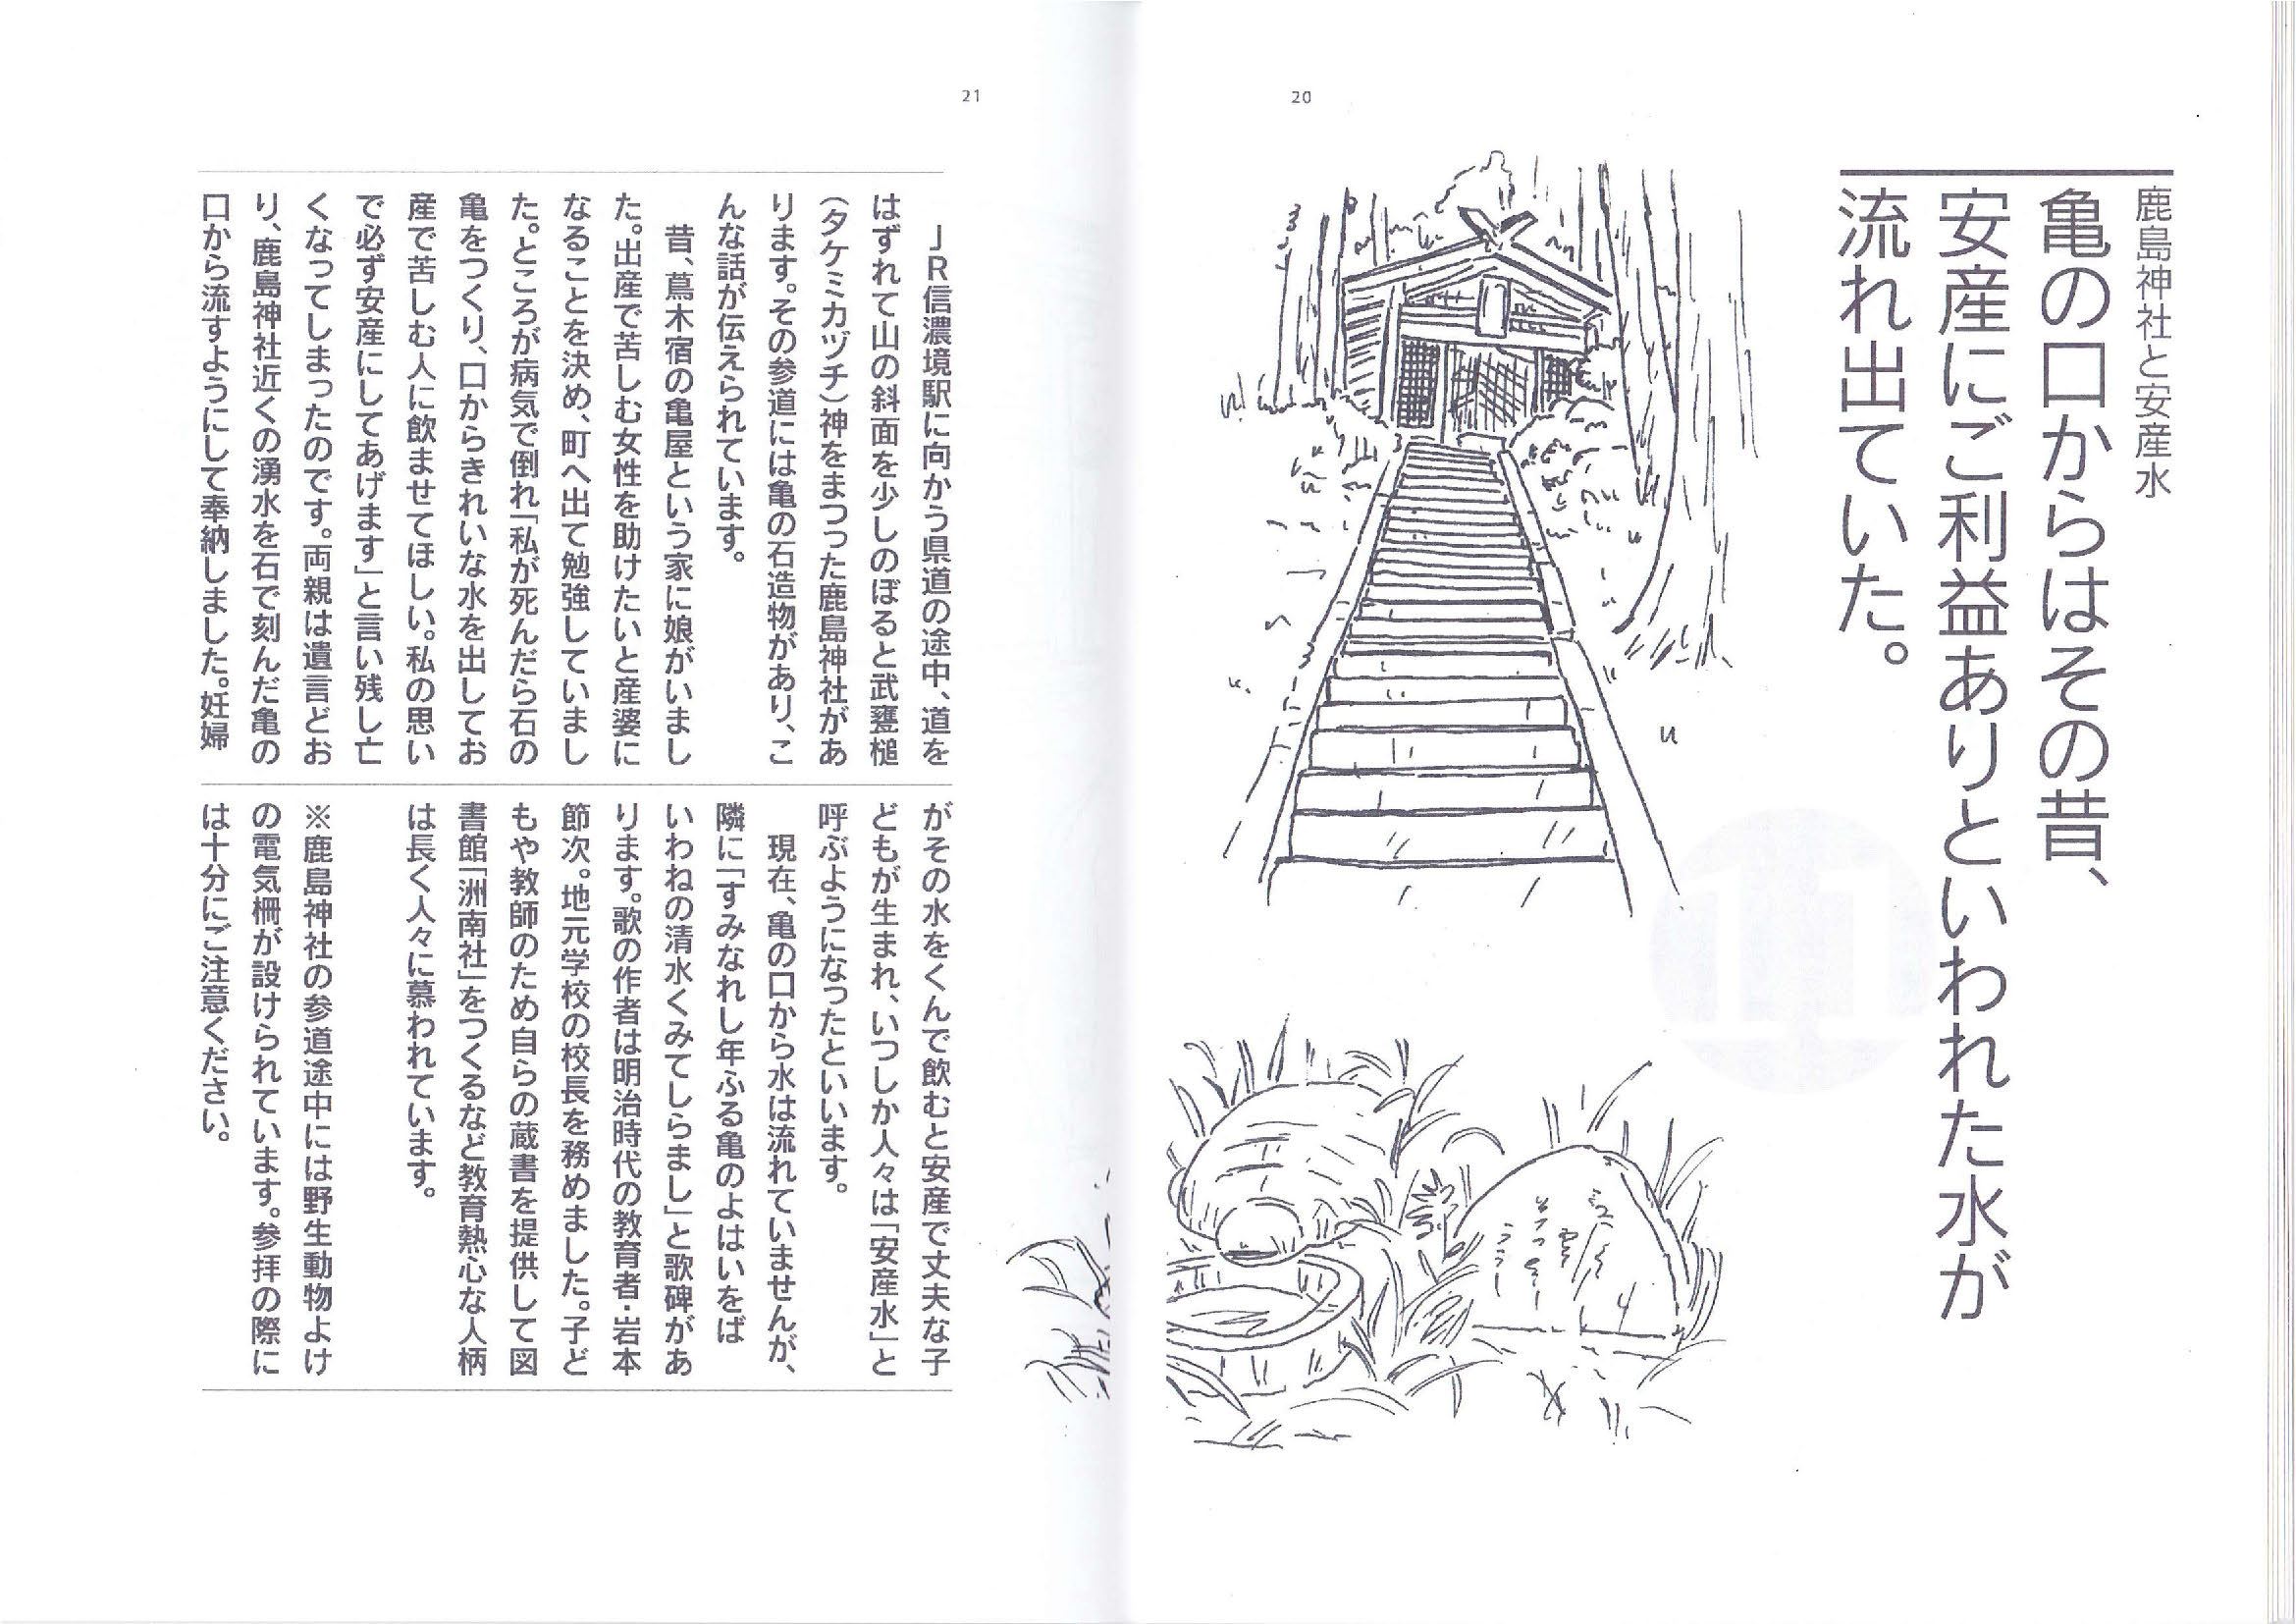 20
鹿島神社と安産水
亀の口からはその昔、
安産にご利益ありといわれた水が
流れ出ていた。
21
JR信濃境駅に向かう県道の途中、道を
はずれて山の斜面を少しのぼると武甕槌
（タケミカヅチ）神をまつった鹿島神社があ
ります。その参道には亀の石造物があり、こ
んな話が伝えられています。
昔、蔦木宿の亀屋という家に娘がいまし
た。出産で苦しむ女性を助けたいと産婆に
なることを決め、町へ出て勉強していまし
た。ところが病気で倒れ「私が死んだら石の
亀をつくり、口からきれいな水を出してお
産で苦しむ人に飲ませてほしい。私の思い
で必ず安産にしてあげます」と言い残し亡
くなってしまったのです。両親は遺言どお
り、鹿島神社近くの湧水を石で刻んだ亀の
口から流すようにして奉納しました。妊婦
がその水をくんで飲むと安産で丈夫な子
どもが生まれ、いつしか人々は「安産水」と
呼ぶようになったといいます。
現在、亀の口から水は流れていませんが、
隣に「すみなれし年ふる亀のよはいをば
いわねの清水くみてしらまし」と歌碑があ
ります。歌の作者は明治時代の教育者・岩本
節次。地元学校の校長を務めました。子ど
もや教師のため自らの蔵書を提供して図
書館「洲南社」をつくるなど教育熱心な人柄
は長く人々に慕われています。
※鹿島神社の参道途中には野生動物よけ
の電気柵が設けられています。参拝の際に
は十分にご注意ください。